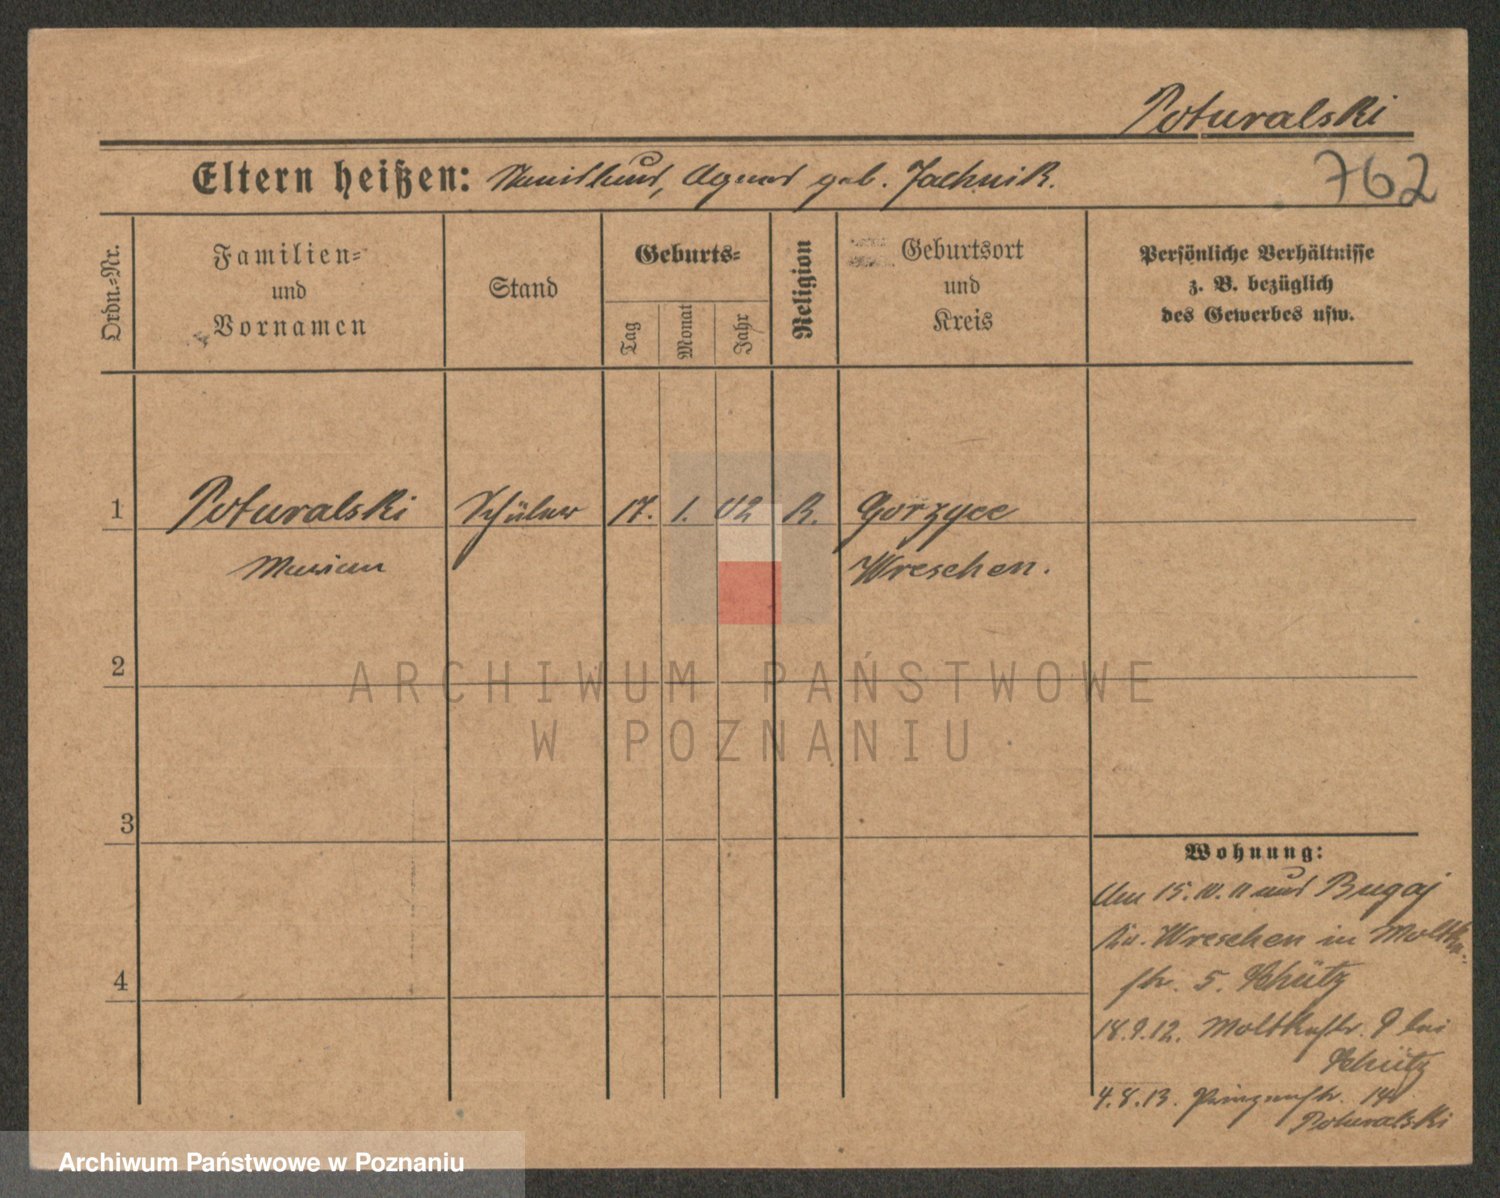 Poturalski
762
Eltern heißen: Agnes geb. Jachnik.
Ordn.=Nr.
Familien=
und
Vornamen
Stand
Geburts=
Tag
Monat
Jahr
Religion
Geburtsort
und
Kreis
Persönliche Verhältnisse
z. B. bezüglich
des Gewerbes usw.
1 Poturalski Schüler 17. 1. 02 K. Gorzyce
Marian Wreschen.
2
ARCHIWUM PAŃSTWOWE
W POZNANIU
3
4
Wohnung:
Am 15.10.11 aus Bugaj
Kr. Wreschen in Moltke-
str. 5. Schütz
18.9.12. Moltkestr. 9 bei
Schütz
4.8.13. Prinzenstr. 14
Poturalski
Archiwum Państwowe w Poznaniu